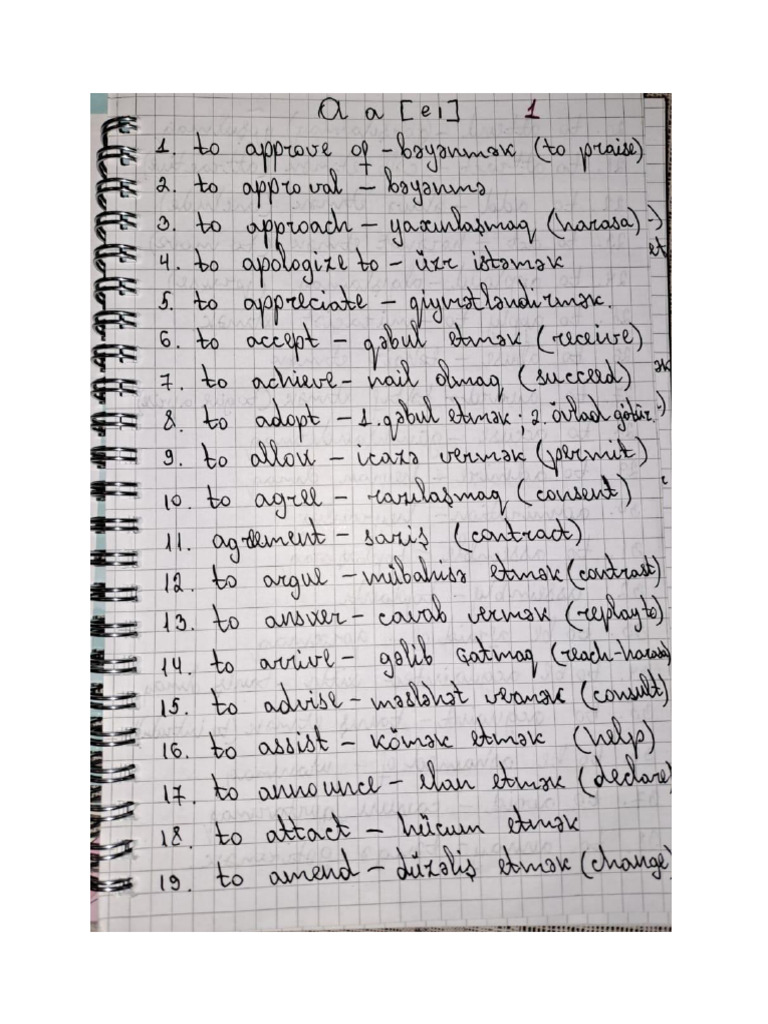 A a [ei] 1
1. to approve of - bəyənmək (to praise)
2. to approval - bəyənmə
3. to approach - yaxınlaşmaq (harasa)
4. to apologize to - üzr istəmək
5. to appreciate - qiymətləndirmək.
6. to accept - qəbul etmək (receive)
7. to achieve - nail olmaq (succeed)
8. to adopt - 1. qəbul etmək; 2. övlad götür.
9. to allow - icazə vermək (permit)
10. to agree - razılaşmaq (consent)
11. agreement - saziş (contract)
12. to argue - mübahisə etmək (contrast)
13. to answer - cavab vermək (replay to)
14. to arrive - gəlib çatmaq (reach-harasa)
15. to advise - məsləhət vermək (consult)
16. to assist - kömək etmək (help)
17. to announce - elan etmək (declare)
18. to attact - hücum etmək
19. to amend - düzəliş etmək (change)